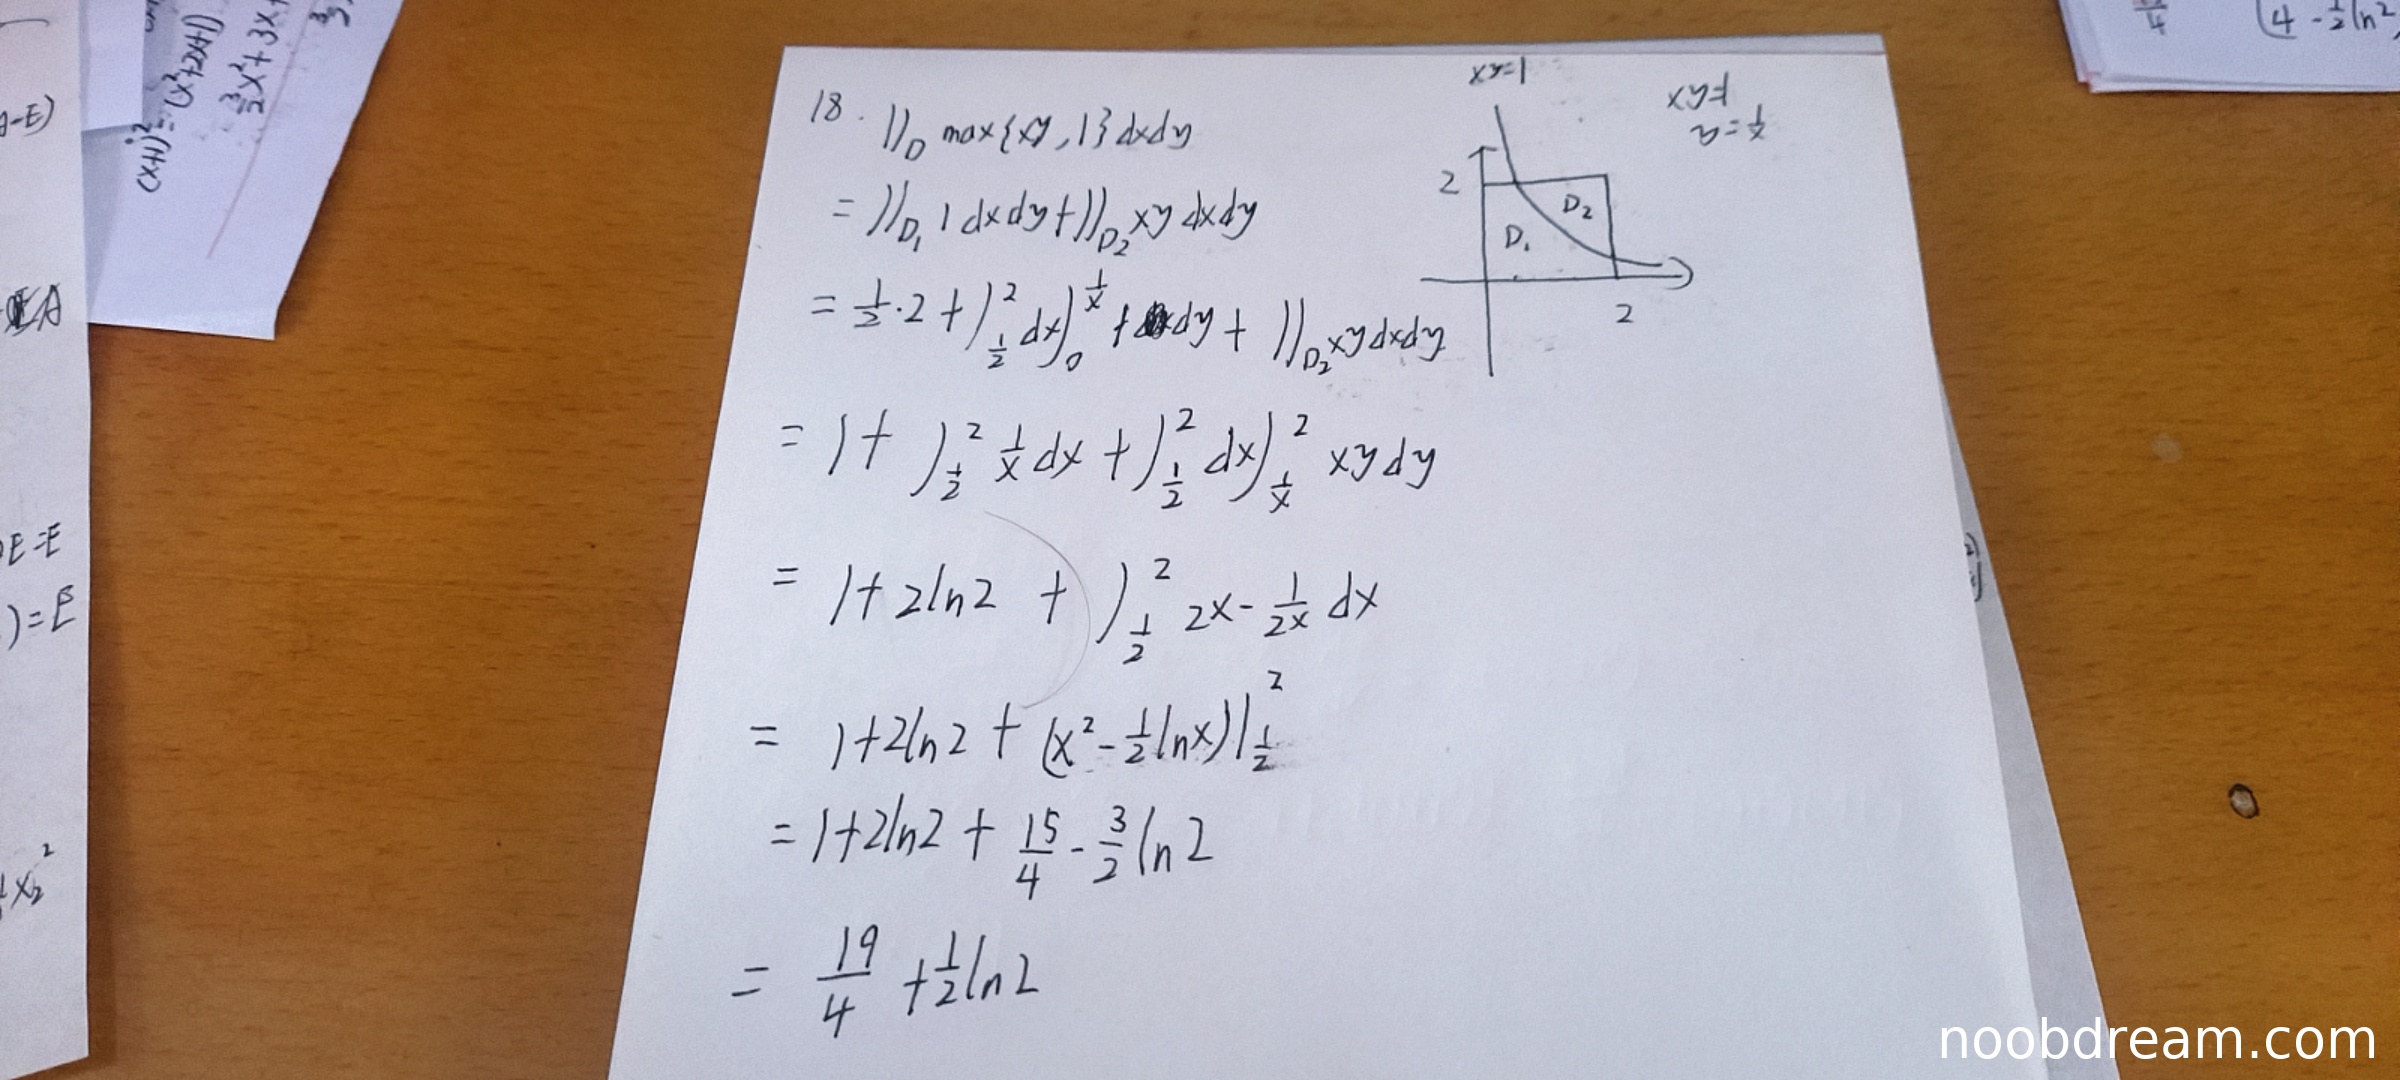 18. ∬_D max{xy,1}dxdy
= ∬_{D₁} 1 dxdy + ∬_{D₂} xy dxdy
= 1/2·2 + ∫_{1/2}^{2} dx ∫_0^{1/x} 1 dy + ∬_{D₂} xy dxdy
= 1 + ∫_{1/2}^{2} 1/x dx + ∫_{1/2}^{2} dx ∫_{1/x}^{2} xy dy
= 1 + 2ln2 + ∫_{1/2}^{2} 2x - 1/2x dx
= 1 + 2ln2 + (x² - 1/2 lnx)|_{1/2}^{2}
= 1 + 2ln2 + 15/4 - 3/2 ln2
= 19/4 + 1/2 ln2
xy=1
2
D₂
D₁
2
xy=1
y=1/x
(x+1)²=(x²+2x+1)
3/2x²+3x+
4 - 1/2 ln2
A
E=E
)=E
x₂²
noobdream.com